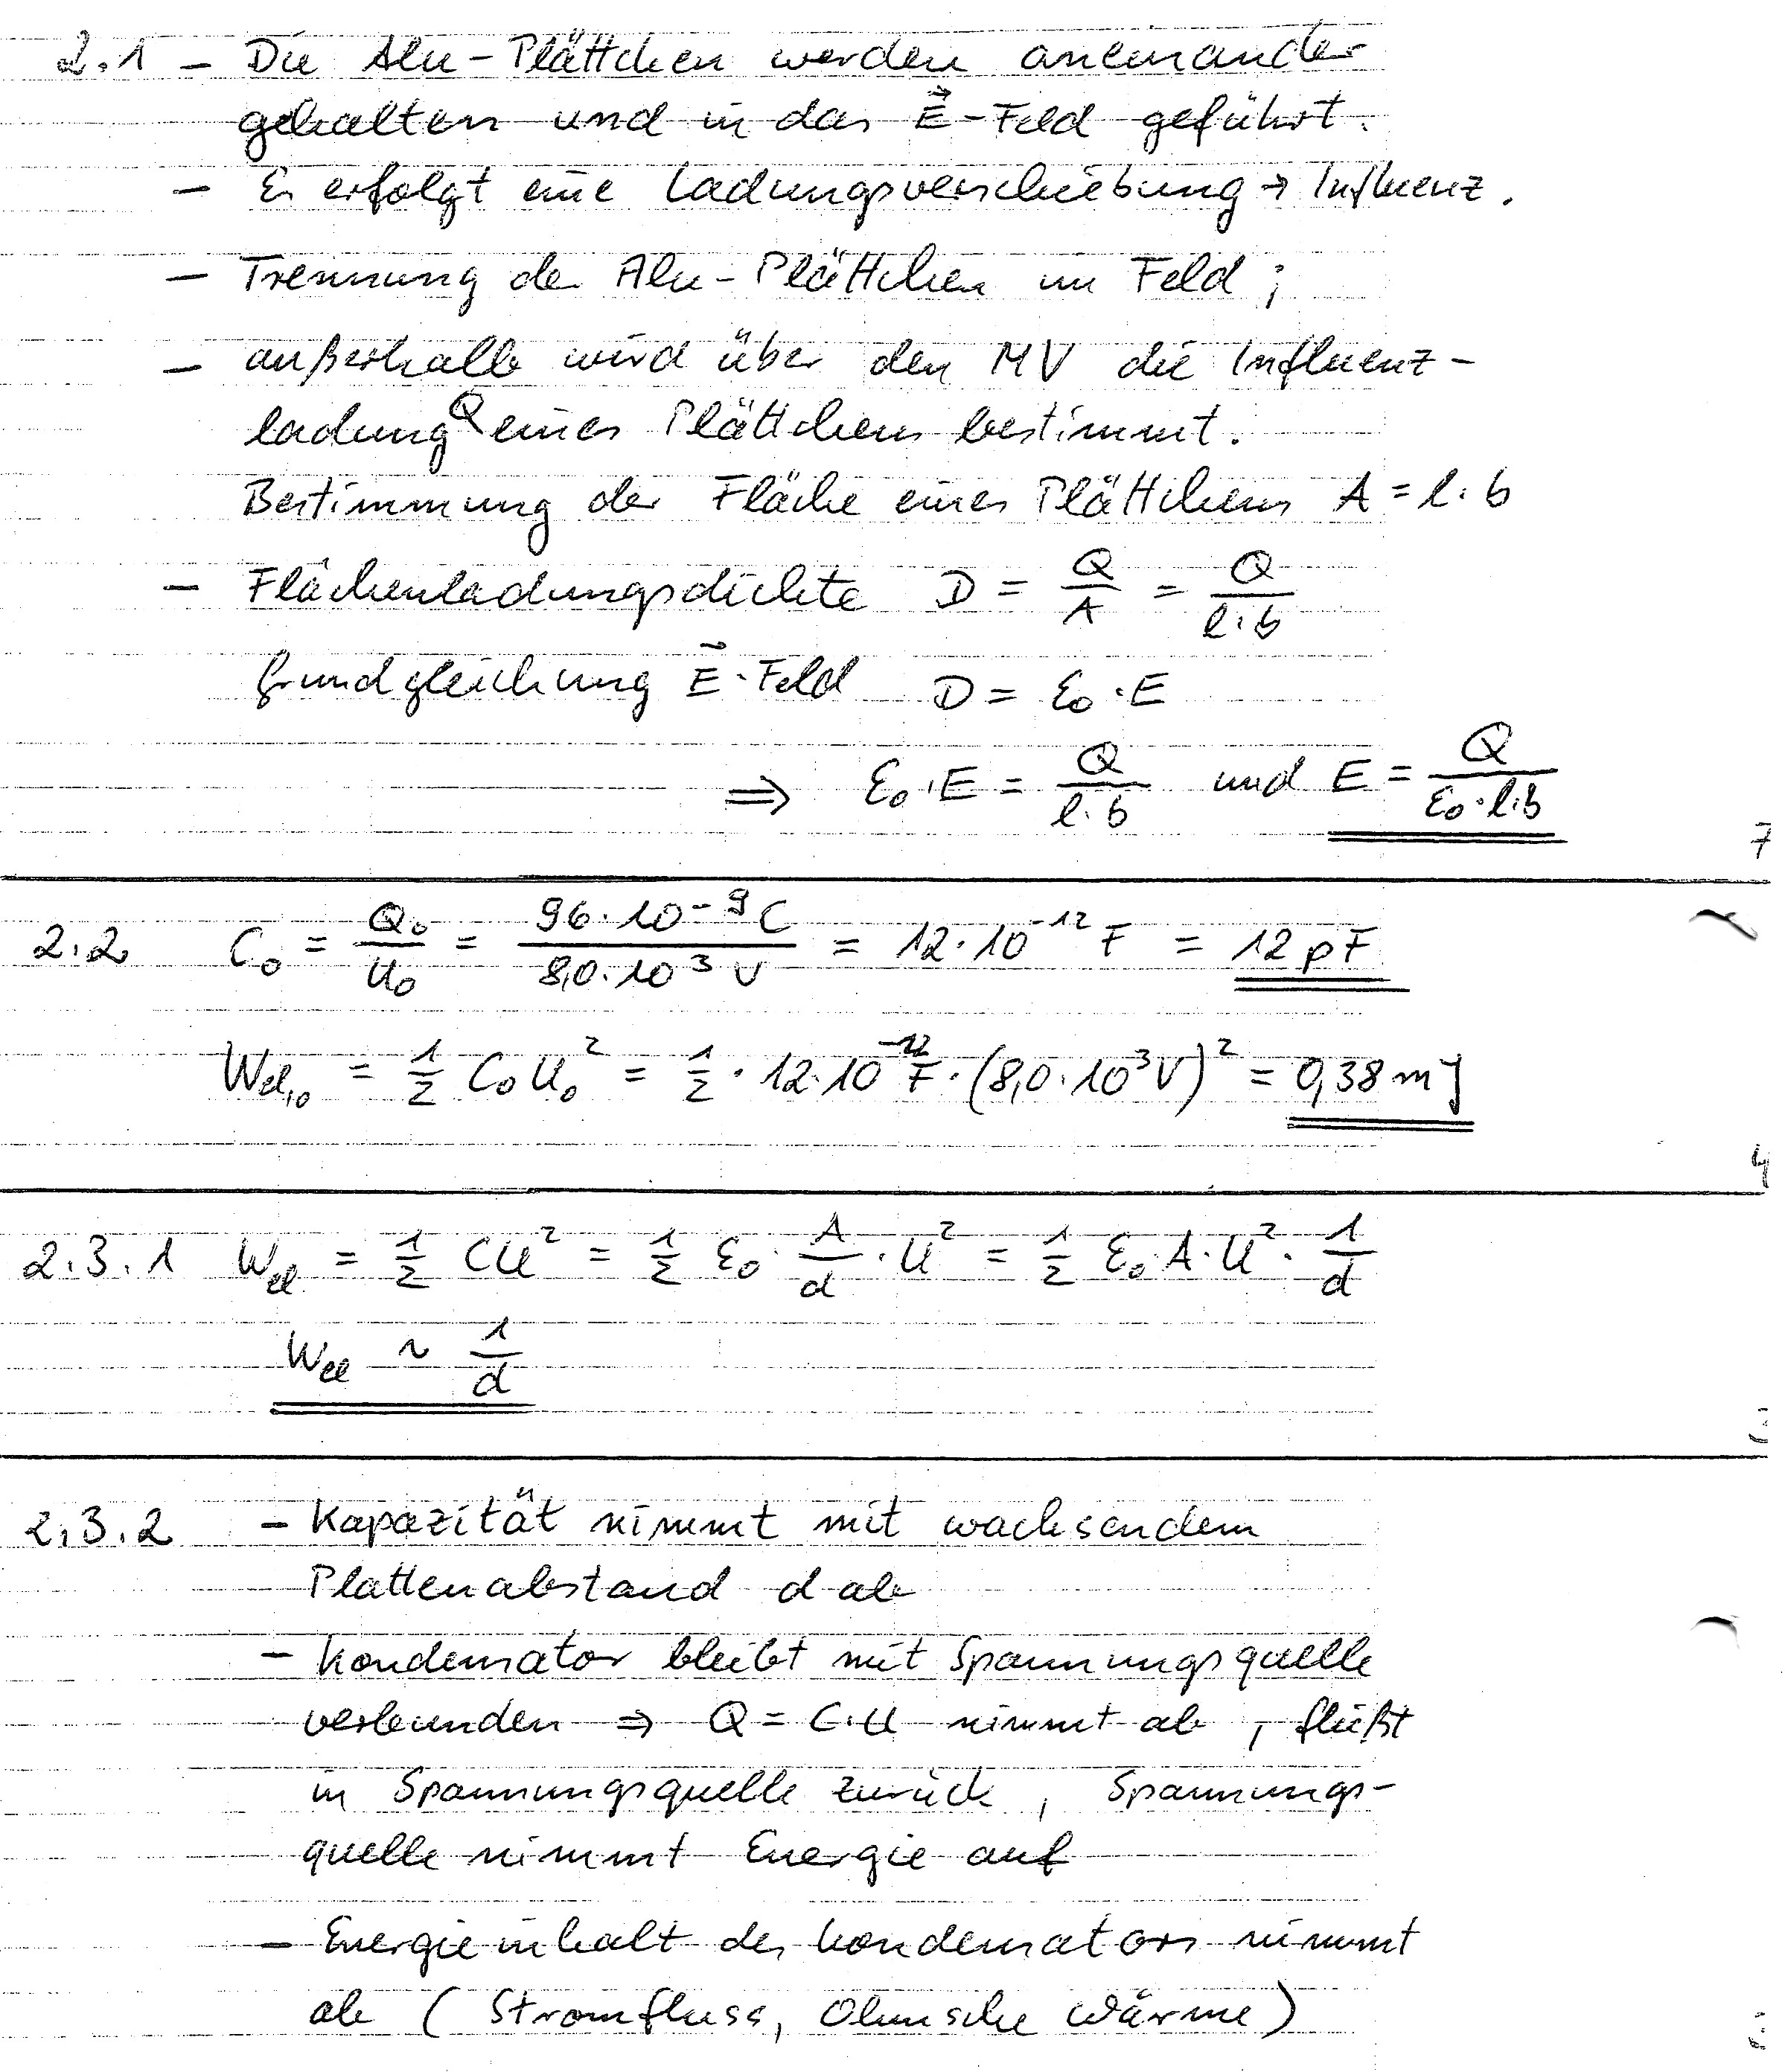 2.1 – Die Alu-Plättchen werden aneinander
gehalten und in das E⃗-Feld geführt.
– Es erfolgt eine Ladungsverschiebung → Influenz.
– Trennung der Alu-Plättchen im Feld;
– außerhalb wird über den MV die Influenz-
ladung Q eines Plättchens bestimmt.
Bestimmung der Fläche eines Plättchens A = l·b
– Flächenladungsdichte D = Q/A = Q/(l·b)
Grundgleichung E⃗-Feld D = ε₀·E
⇒ ε₀·E = Q/(l·b) und E = Q/(ε₀·l·b)
7
2.2 C₀ = Q₀/U₀ = 96·10⁻⁹C/(8,0·10³V) = 12·10⁻¹² F = 12 pF
Wel,0 = 1/2 C₀U₀² = 1/2 · 12·10⁻¹²F·(8,0·10³V)² = 0,38 mJ
4
2.3.1 Wel = 1/2 CU² = 1/2 ε₀·A/d·U² = 1/2 ε₀·A·U²·1/d
Wel ~ 1/d
3
2.3.2 – Kapazität nimmt mit wachsendem
Plattenabstand d ab
– Kondensator bleibt mit Spannungsquelle
verbunden ⇒ Q = C·U nimmt ab, fließt
in Spannungsquelle zurück, Spannungs-
quelle nimmt Energie auf
– Energieinhalt des Kondensators nimmt
ab (Stromfluss, Ohmsche Wärme)